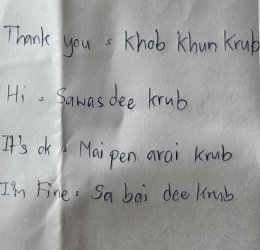 Thank you = Khob Khun Krub
Hi = Sawas dee krub
It's ok = Mai pen arai krub
I'm Fine = Sa bai dee krub